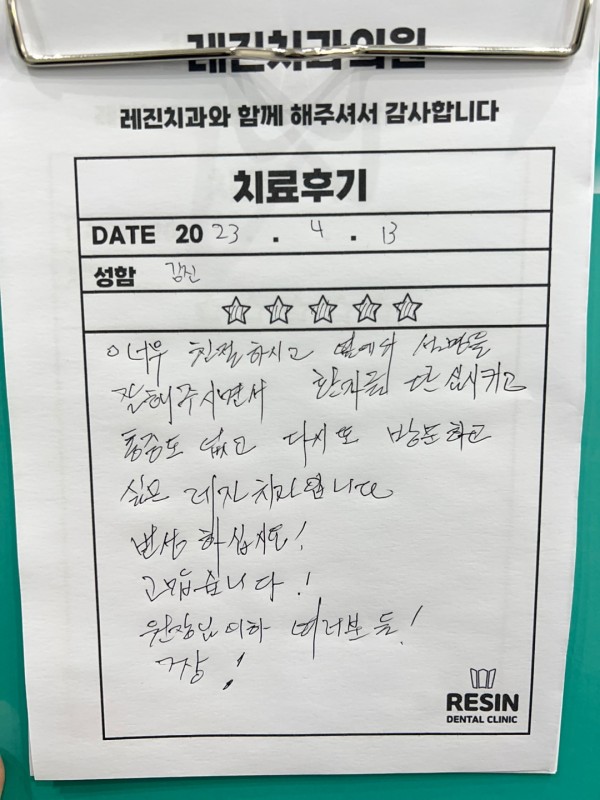 레진치과의원
레진치과와 함께 해주셔서 감사합니다
치료후기
DATE 2023 . 4 . 13
성함 김진
너무 친절하시고 옆에서 설명을
잘해주시면서 환자를 안심시키고
통증도 없고 다시 또 방문하고
싶은 레진치과입니다
번성하십시요!
고맙습니다!
원장님 이하 여러분들!
RESIN
DENTAL CLINIC